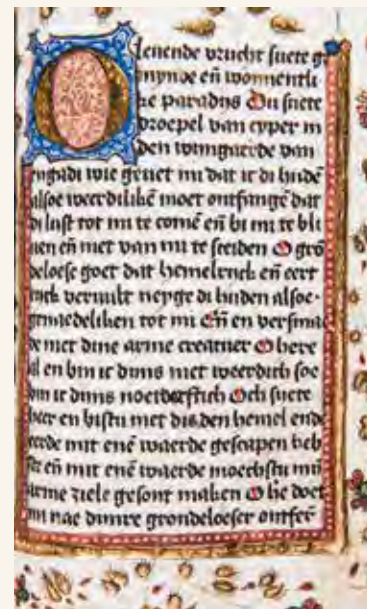 O lenende vrucht suete g
mynne en̄ wonnentli
ke paradijs Du suete
droepel van cyper in
den wingaerde van
engadi wie geuet mi dat ic di hudē
alsoe weerdilikē moet ontfangē dat
di lust tot mi te comē en̄ bi mi te bli
uen en̄ niet van mi te sceiden O grō
deloese goet dat hemelrijck en̄ eert
rijck veruult neyge di huden alsoe
genaedeliken tot mi En̄ en versma
de niet dine arme creatuer O here
al en bin ic dijns niet weerdich soe
bin ic dijns noetdorftich Och suete
heer en bistu niet die den hemel ende
eerde mit enē waerde gescapen heb
ste en̄ mit enē waerde moechstu mijn
arme ziele gesont maken O h̄e doet
mi nae dijnre grondeloeser ontfer